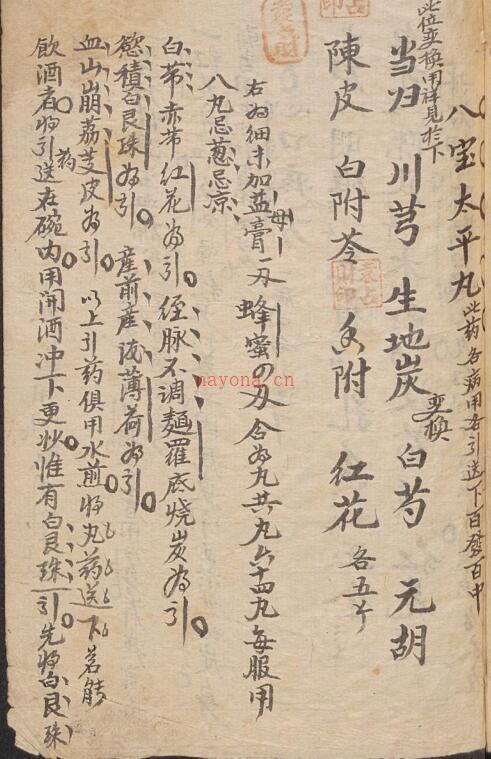 此位变换用详见於下
八宝太平丸 此药各病用各引送下百發百中
当归 川芎 生地炭 变换 白芍 元胡
陳皮 白附苓 香附 红花 各五个
右为细末加益母膏一刄蜂蜜四刄合为丸共丸六十四丸每服用
八丸忌葱忌凉
白带赤带红花为引 经脉不调麵羅底烧炭为引
慾積白艮珠为引 産前産後薄荷为引
血山崩荔芰皮为引 以上引药俱用水煎将丸药送下若能
飲酒者将引药送在碗内用開酒冲下更妙惟有白艮珠引先将白艮珠
nayona.cn